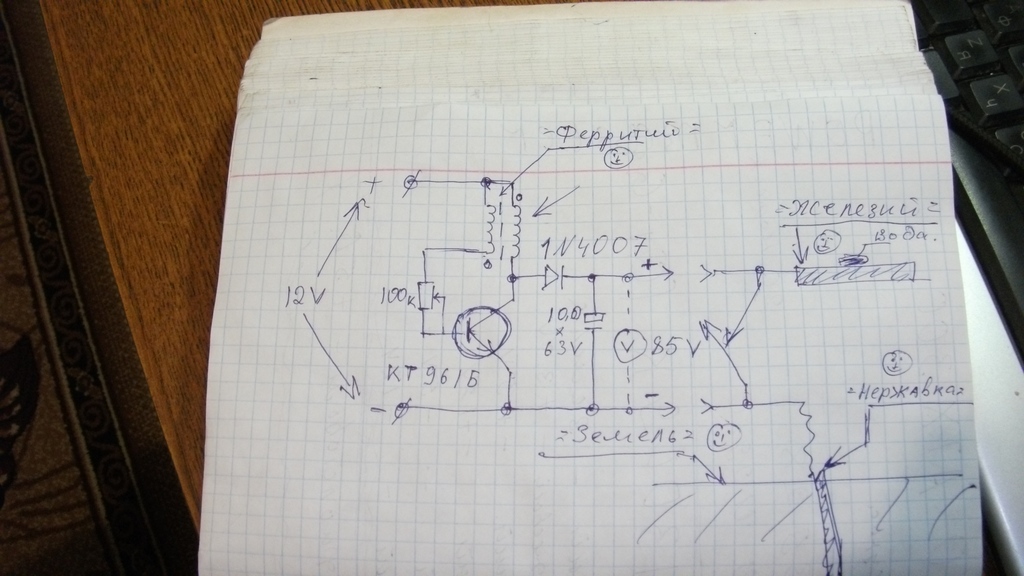 =Ферритий=
+
=Железий=
вода.
1N4007
+
12V
100к
100
x
63V
V
85V
КТ961Б
=Нержавка=
-
-
=Земель=